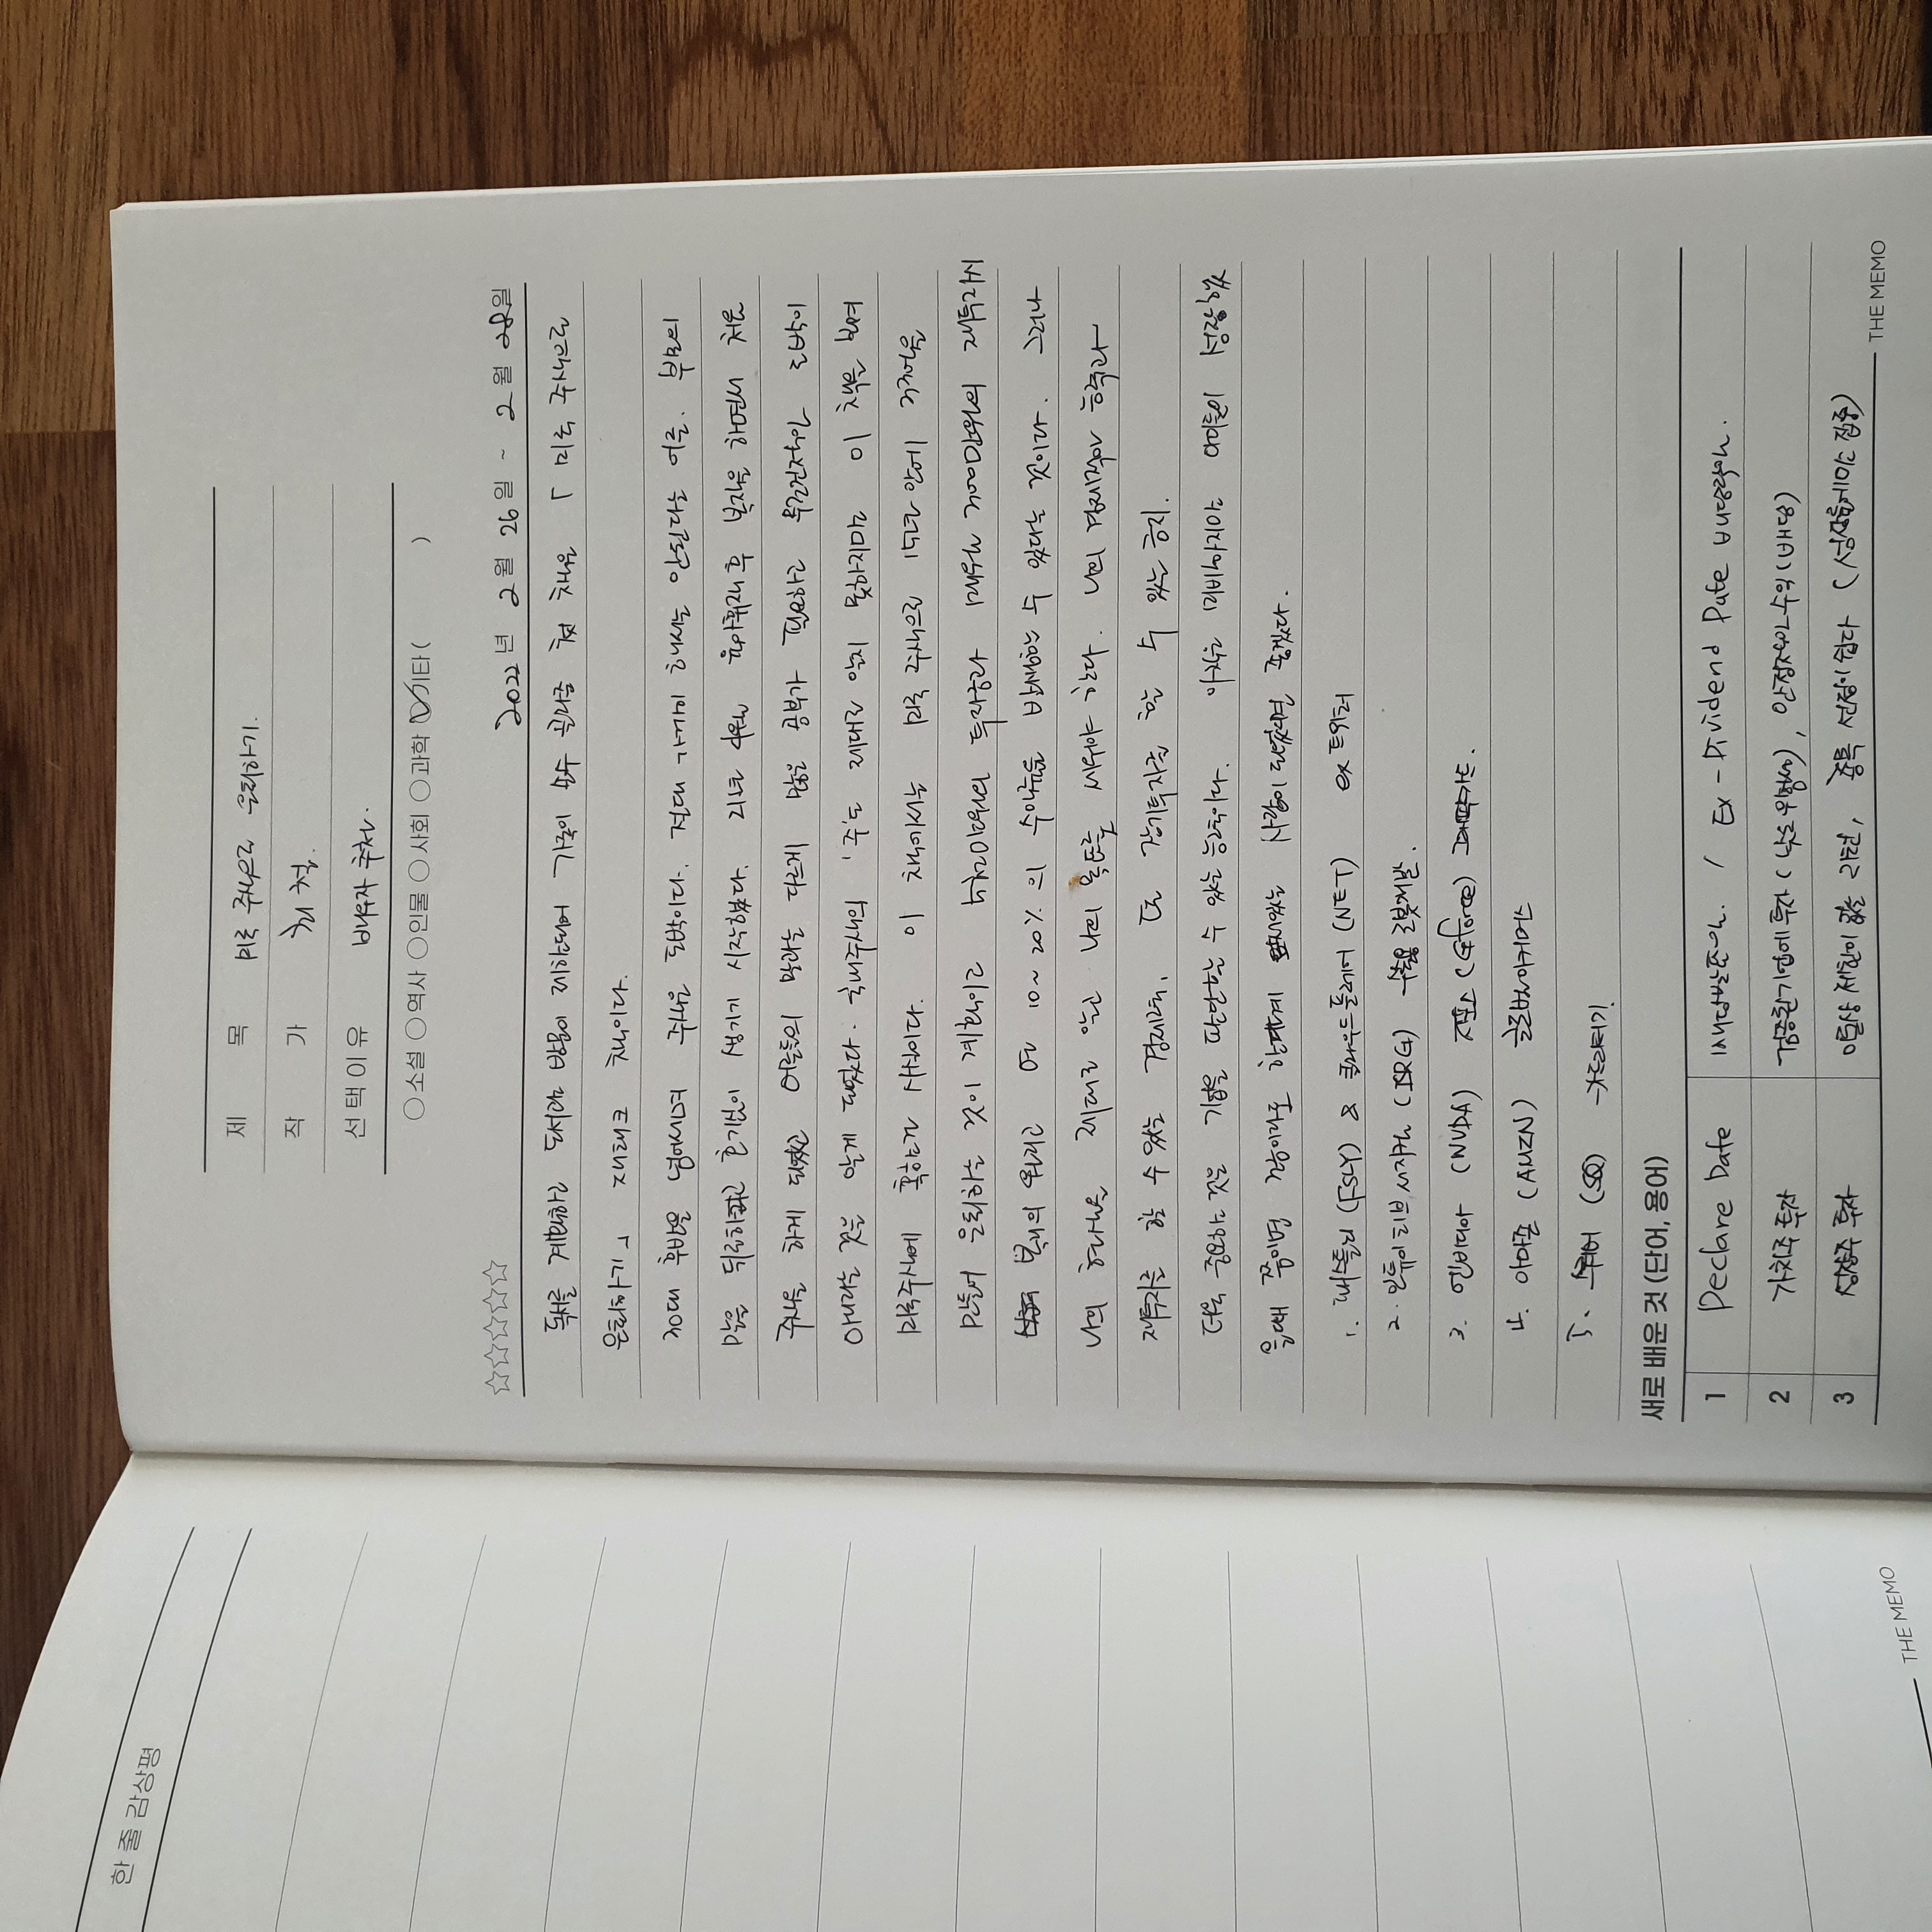 한 줄 감상평
제 목 미국 주식으로 은퇴하기.
작 가 최 철.
선택이유 배우자 추천.
소설 역사 인물 사회 과학 기타 ( )
2022년 2월 26일 ~ 2월 28일
독서를 계획하고 도서관 방문이 제한되어 가족이 손수 골라준 첫 책은 「미국 주식으로
은퇴하기」 재태크 책이다.
30대 후반을 넘어서며 주식은 도박이다. 절대 가까이 해서는 안된다는 어른. 부모의
말을 뒤로하고 호기심이 생기기 시작했다. 21년 4월 육아휴직 후 복직을 하면서 처음
주식을 하게 되었고 어른들의 말과는 다르게 많은 공부가 필요하고 무조건적인 도박이
아니라는 것을 알게 되었다. 국내주식의 '주'도 제대로 알지 못하지만 이 책을 보며
미국주식에 혹한건 사실이다. 이 책에서는 미국 주식으로 15년 안에 30억을
만들어 은퇴하는 것이 계획이고 5천만원의 투자금과 매월 300만원의 재투자시
복리의 원리로 연 10~20%의 수익률을 발생하는 수 있다는 것이다. 그러나
나의 현실을 제대로 알고 나의 목표를 세워야 한다. 나의 경제적인 능력과
재투자를 할 수 있는 경제력, 또 장기투자를 할 수 있는 긍지.
더욱 중요한 것은 기업을 판단할 수 있는 능력이다. 아직은 미비하지만 아이들이 성장했
을때 쯤이면 조금이라도 한단계 앞서있는 사람이 되었으면 좋겠다.
1. 패스틀리 (FSLY) & 클라우드플레어 (NET) ex 트위터
2. 인튜이티브 서지컬 (ISRG) 수술용 로봇개발.
3. 엔비디아 (NVDA) 지포스 (Gforce) 그래픽카드.
4. 아마존 (AMZN) 글로벌이커머스
5. 스퀘어 (SQ) 카드리더기.
새로 배운 것 (단어, 용어)
1 Declare Date 배당발표일. / Ex-Dividend Date 배당락일.
2 가치주 투자 검증된기업에 투자 (낮은 위험성), 안정적인 수익 (배당)
3 성장주 투자 이론상 제한이 없는 리턴, 종목 선정이 쉽다 (성장률에만 집중)
THE MEMO
THE MEMO